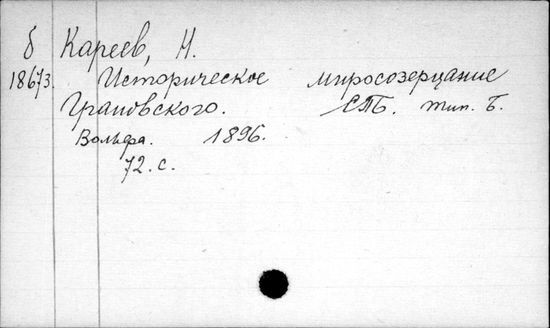 б Кареев, Н.
18673. Историческое миросозерцание
Грановского. СПБ. тип. Б.
Вольфа. 1896.
72. с.